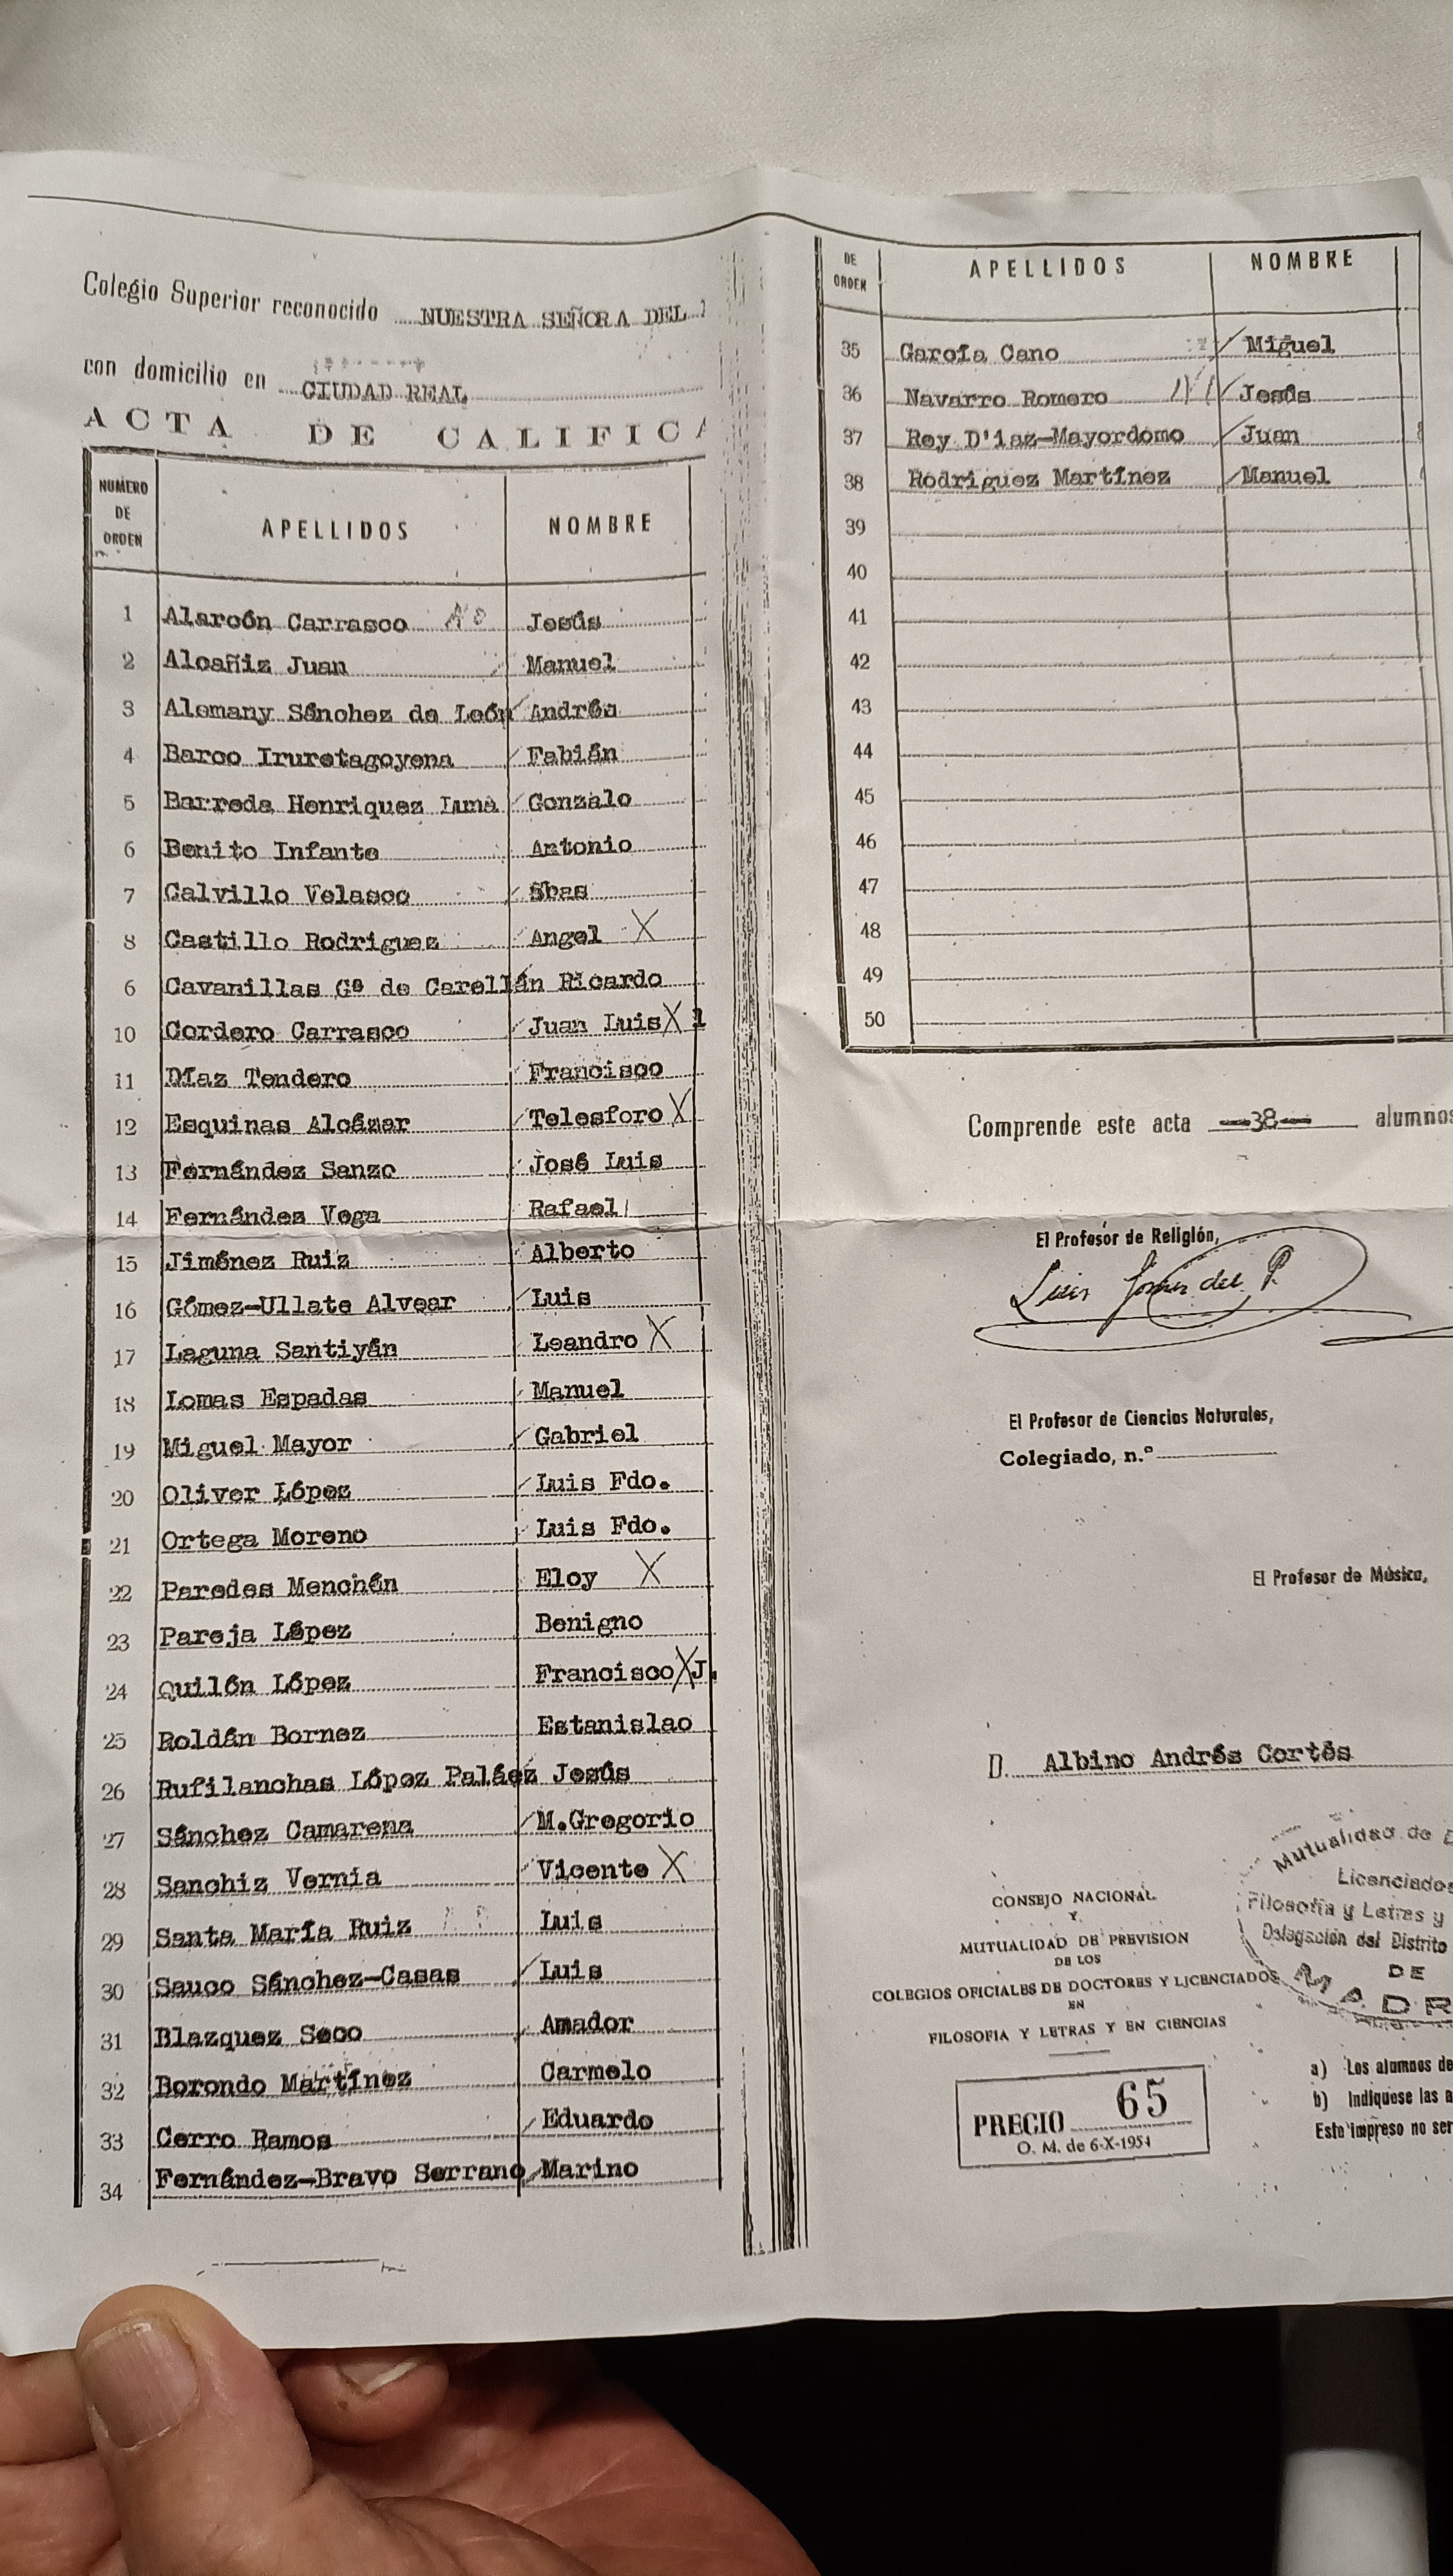 Colegio Superior reconocido NUESTRA SEÑORA DEL
con domicilio en CIUDAD REAL
ACTA DE CALIFICA
NUMERO DE ORDEN APELLIDOS NOMBRE
1 Alarcón Carrasco Jesús
2 Alcañiz Juan Manuel
3 Alemany Sánchez de León Andrés
4 Barco Iruretagoyena Fabián
5 Barreda Henriquez Luna Gonzalo
6 Benito Infante Antonio
7 Calvillo Velasco Sbas
8 Castillo Rodriguez Angel X
6 Cavanillas Gª de Carellán Ricardo
10 Cordero Carrasco Juan Luis X 1
11 Díaz Tendero Francisco
12 Esquinas Alcázar Telesforo X
13 Fernández Sanzo José Luis
14 Fernández Vega Rafael
15 Jiménez Ruiz Alberto
16 Gómez-Ullate Alvear Luis
17 Laguna Santiyán Leandro X
18 Lomas Espadas Manuel
19 Miguel Mayor Gabriel
20 Oliver López Luis Fdo.
21 Ortega Moreno Luis Fdo.
22 Paredes Menchén Eloy X
23 Pareja López Benigno
24 Quilón López Francisco X J.
25 Roldán Bornez Estanislao
26 Rufilanchas López Paláez Jesús
27 Sánchez Camarena M.Gregorio
28 Sanchiz Vernia Vicente X
29 Santa María Ruiz Luis
30 Sauco Sánchez-Casas Luis
31 Blazquez Seco Amador
32 Borondo Martínez Carmelo
33 Cerro Ramos Eduardo
34 Fernández-Bravo Serrano Marino
DE ORDEN APELLIDOS NOMBRE
35 García Cano Miguel
36 Navarro Romero Jesús
37 Rey D'iaz-Mayordomo Juan
38 Rodriguez Martínez Manuel
39
40
41
42
43
44
45
46
47
48
49
50
Comprende este acta —38— alumnos
El Profesor de Religión,
Luis
El Profesor de Ciencias Naturales,
Colegiado, n.º
El Profesor de Música,
D. Albino Andrés Cortés
CONSEJO NACIONAL
Y
MUTUALIDAD DE PREVISION
DE LOS
COLEGIOS OFICIALES DE DOCTORES Y LICENCIADOS
EN
FILOSOFIA Y LETRAS Y EN CIENCIAS
PRECIO 65
O. M. de 6-X-1951
Mutualidad de
Licenciados
Filosofía y Letras y
Delegación del Distrito
DE
MADR
a) Los alumnos de
b) Indiquese las a
Este impreso no ser